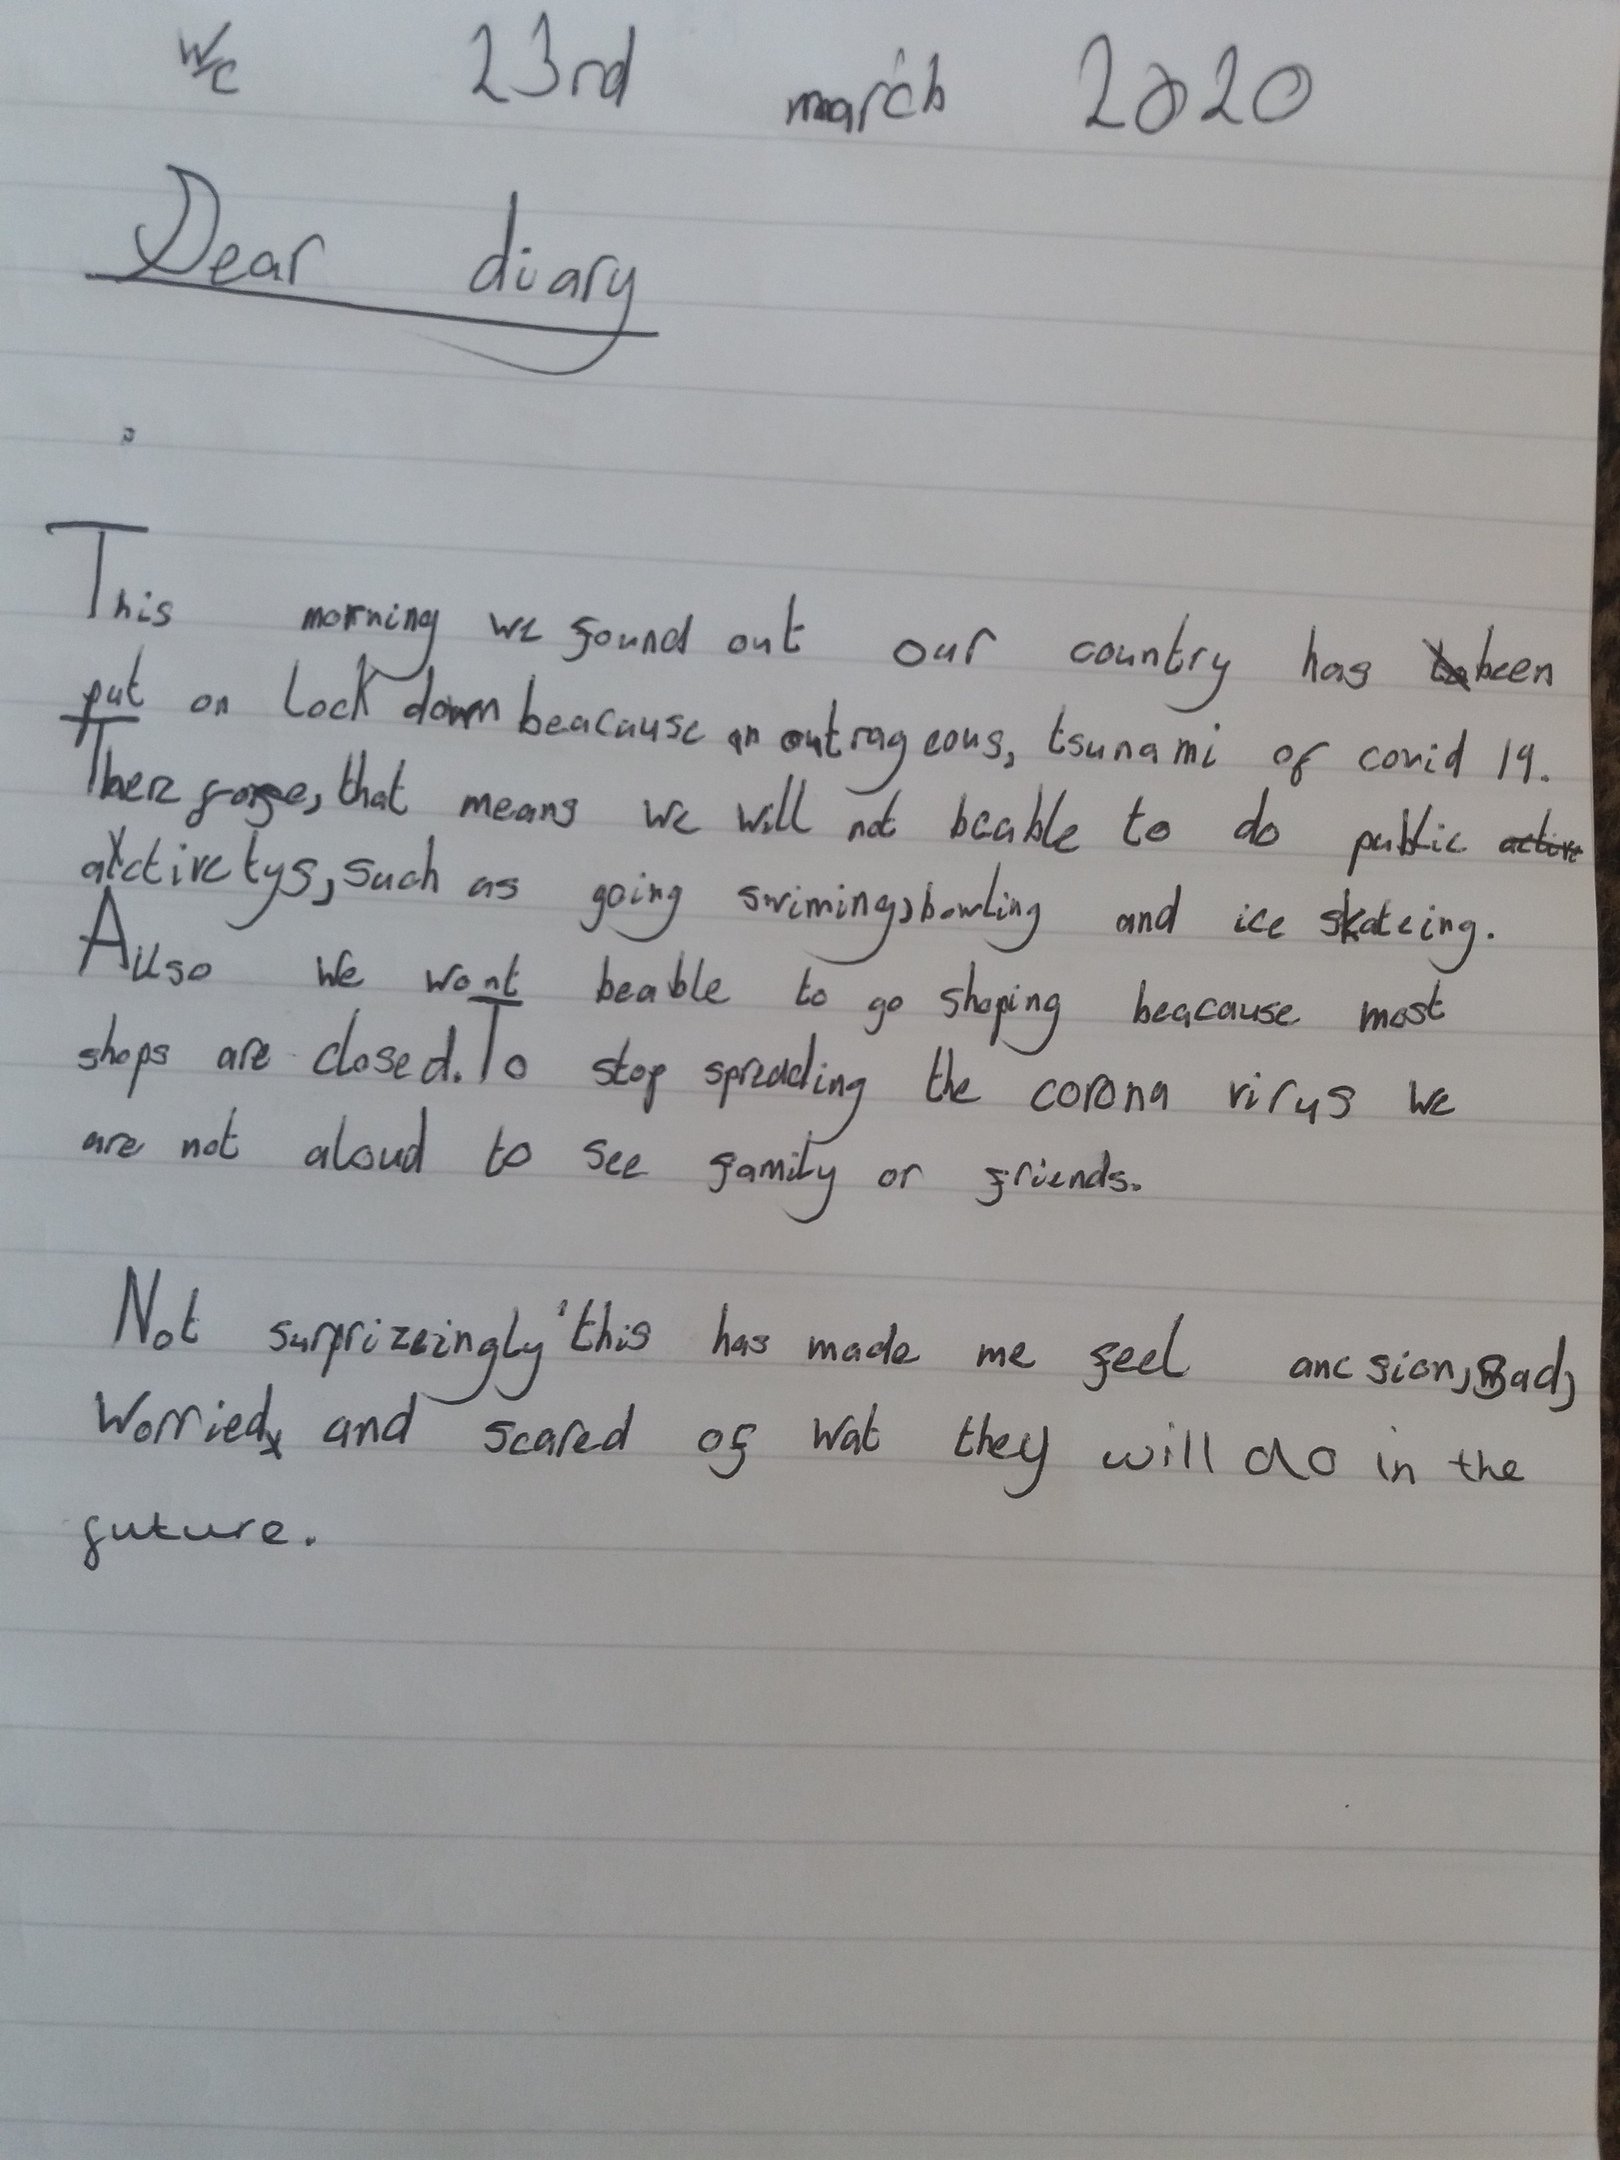 W/C 23rd march 2020
Dear diary
This morning we found out our country has been
put on lock down beacause an outrageous, tsunami of covid 19.
Therefore, that means we will not beable to do public active
atctivetys, such as going swiming, bowling and ice skateing.
Allso we wont beable to go shoping beacause most
shops are closed. To stop spreading the corona virus we
are not aloud to see family or friends.
Not surprizeingly this has made me feel ancsion, sad,
Worried, and scared of wat they will do in the
future.